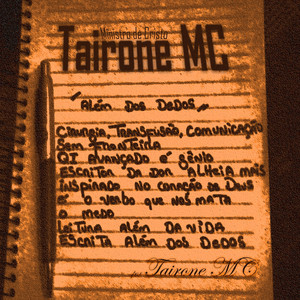 Ministro de Cristo
Tairone MC
"Além dos Dedos"
Cirurgia, Transfusão, Comunicação
Sem fronteira
QI avançado é gênio
Escritor da dor alheia mais
inspirado no coração de Deus
é o verbo que nos mata
o medo
Leitura além da vida
Escrita além dos dedos
por Tairone MC